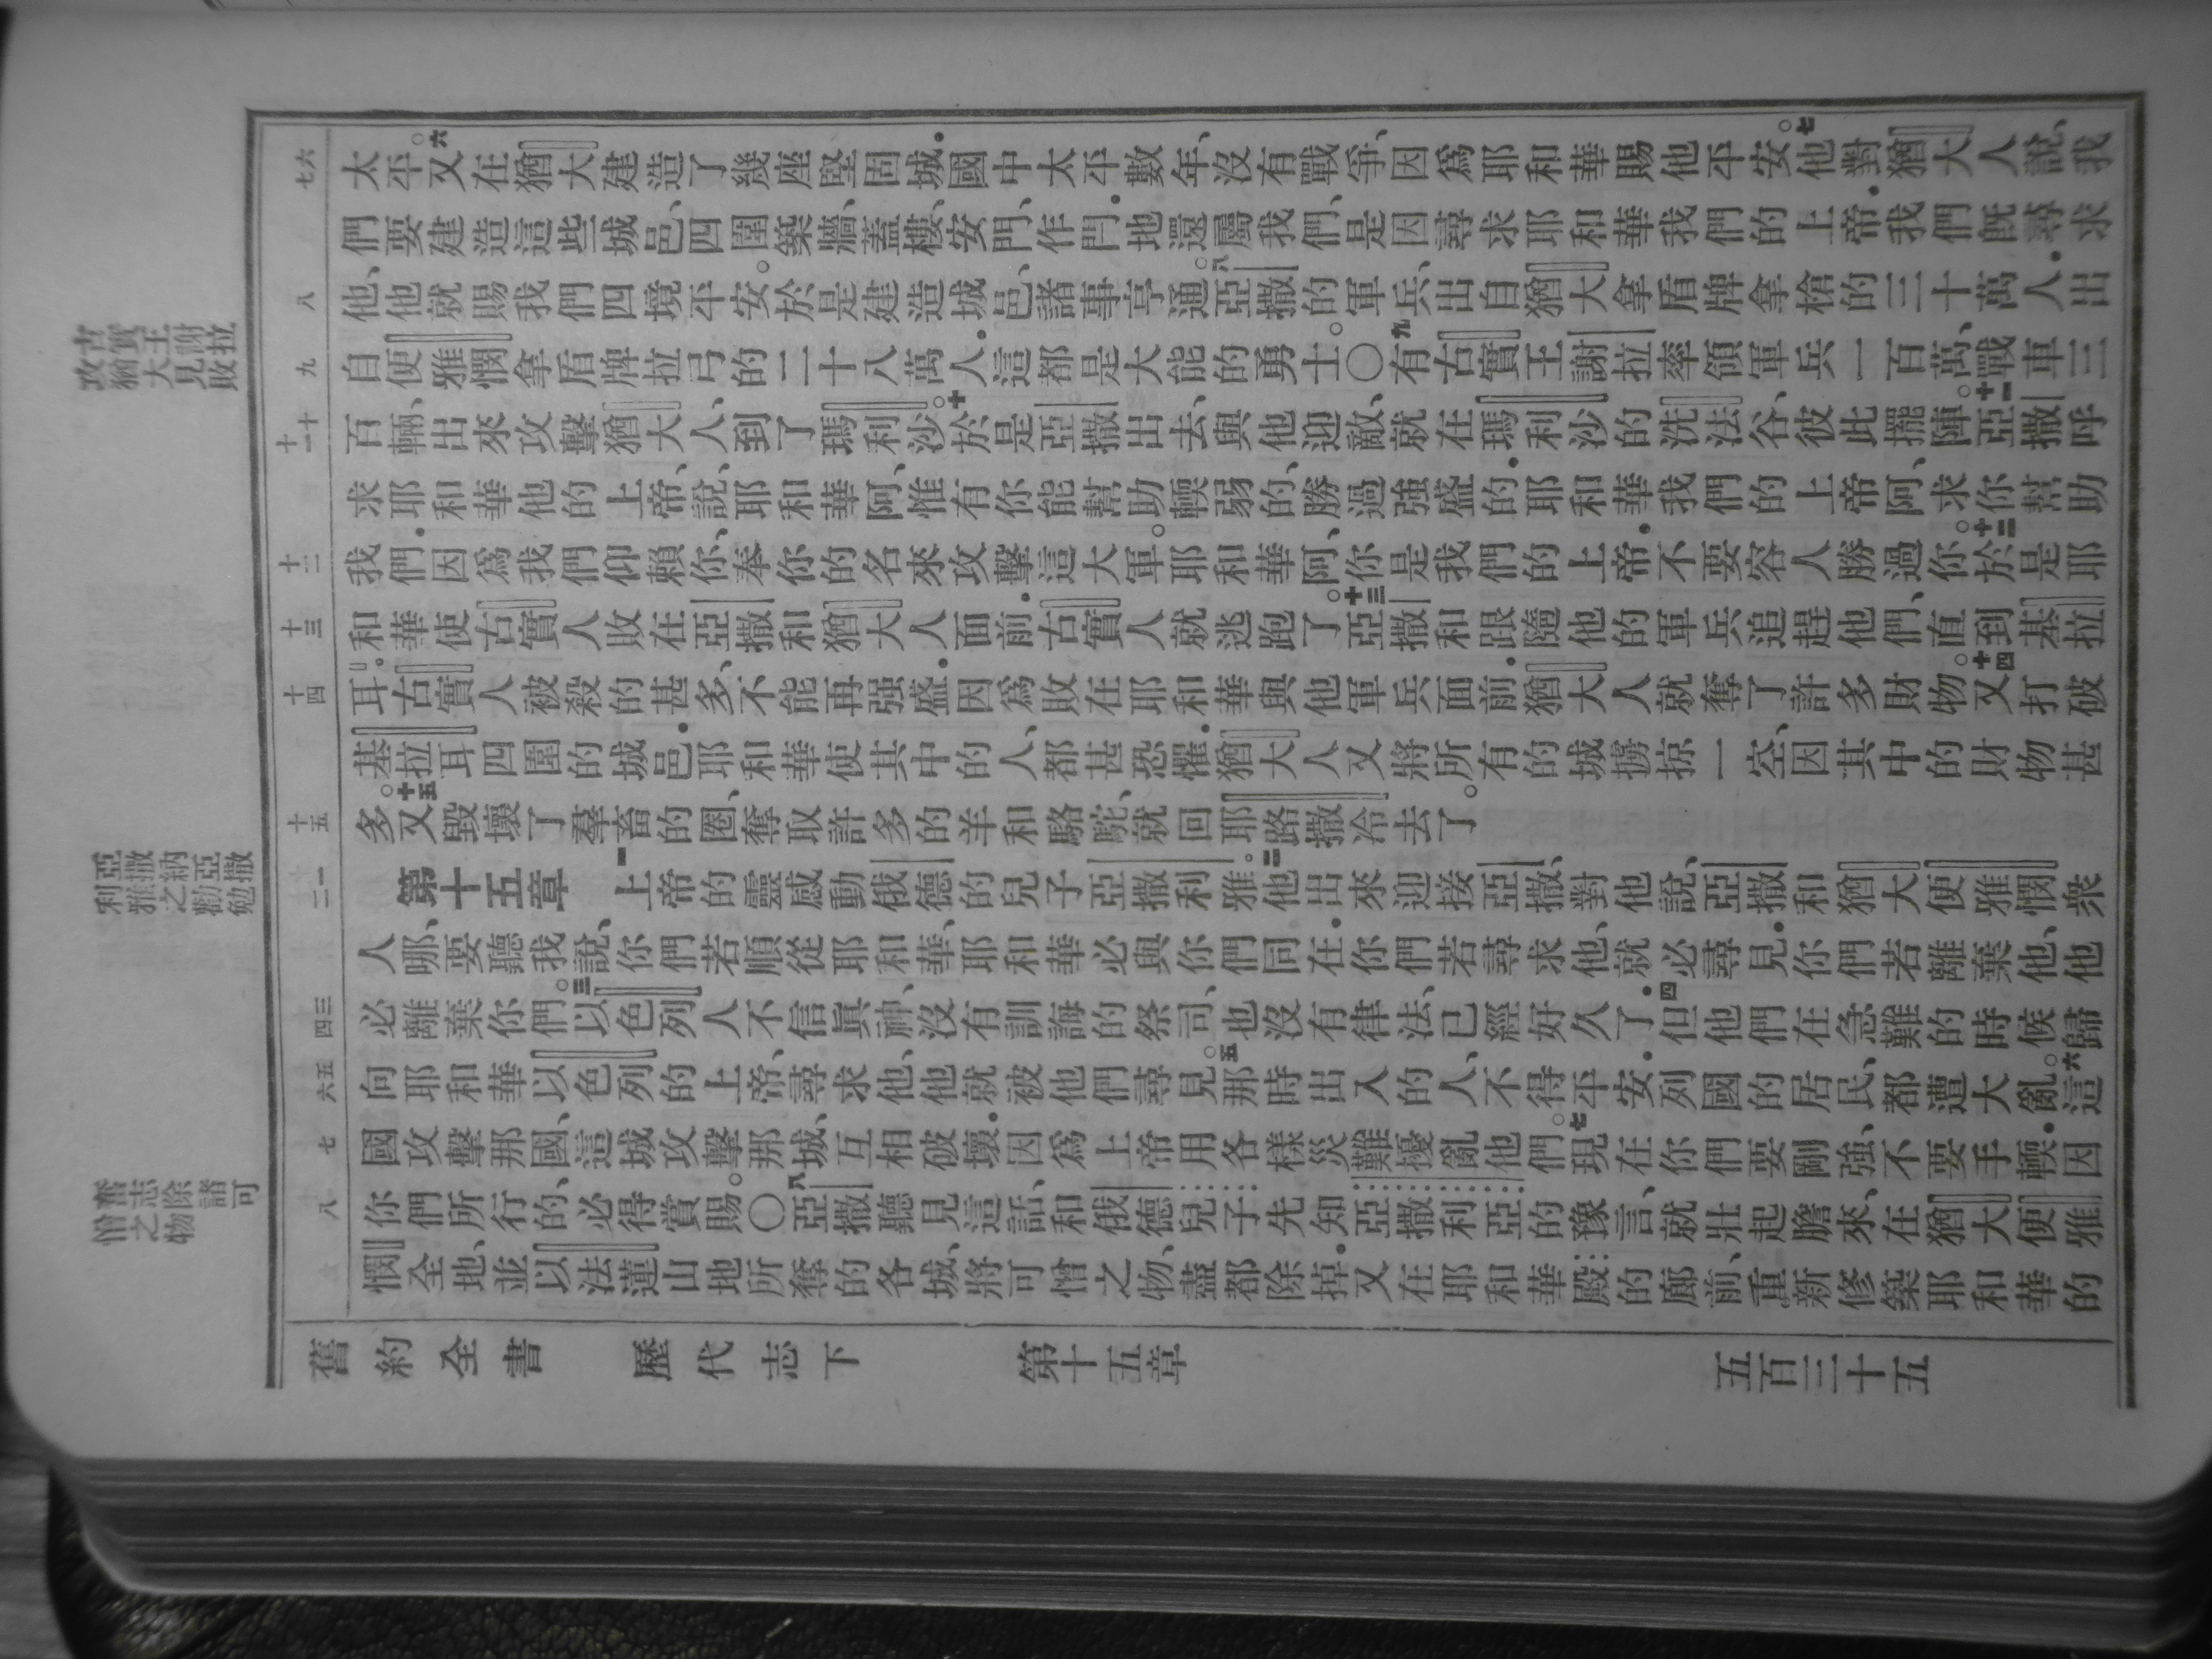 太平。六又在猶大建造了幾座堅固城．國中太平數年、沒有戰爭、因爲耶和華賜他平安。七他對猶大人說、我
們要建造這些城邑、四圍築牆、蓋樓、安門、作閂．地還屬我們、是因尋求耶和華我們的上帝．我們旣尋求
他、他就賜我們四境平安。於是建造城邑、諸事亨通。八亞撒的軍兵、出自猶大拿盾牌拿槍的三十萬人．出
自便雅憫拿盾牌拉弓的二十八萬人．這都是大能的勇士。〇九有古實王謝拉率領軍兵一百萬、戰車三
百輛、出來攻擊猶大人、到了瑪利沙。十於是亞撒出去、與他迎敵、就在瑪利沙的洗法谷、彼此擺陣。十一亞撒呼
求耶和華他的上帝、說、耶和華阿、惟有你能幫助輭弱的、勝過強盛的．耶和華我們的上帝阿、求你幫助
我們．因爲我們仰賴你、奉你的名來攻擊這大軍。耶和華阿、你是我們的上帝．不要容人勝過你。十二於是耶
和華使古實人敗在亞撒和猶大人面前．古實人就逃跑了。十三亞撒和跟隨他的軍兵追趕他們、直到基拉
耳．古實人被殺的甚多、不能再强盛．因爲敗在耶和華與他軍兵面前．猶大人就奪了許多財物。十四又打破
基拉耳四圍的城邑．耶和華使其中的人、都甚恐懼．猶大人又將所有的城擄掠一空、因其中的財物甚
多。十五又毀壞了羣畜的圈、奪取許多的羊和駱駝、就回耶路撒冷去了。
第十五章 一上帝的靈感動俄德的兒子亞撒利雅。二他出來迎接亞撒、對他說、亞撒、和猶大便雅憫衆
人哪、要聽我說、你們若順從耶和華、耶和華必與你們同在．你們若尋求他、就必尋見．你們若離棄他、他
必離棄你們。三以色列人不信眞神、沒有訓誨的祭司、也沒有律法、已經好久了．四但他們在急難的時候歸
向耶和華以色列的上帝、尋求他、他就被他們尋見。五那時出入的人、不得平安．列國的居民、都遭大亂。六這
國攻擊那國、這城攻擊那城、互相破壞．因爲上帝用各樣災難擾亂他們。七現在你們要剛強、不要手輭．因
你們所行的、必得賞賜。〇八亞撒聽見這話、和俄德兒子先知亞撒利亞的豫言、就壯起膽來、在猶大便雅
憫全地、並以法蓮山地所奪的各城、將可憎之物、盡都除掉．又在耶和華殿的廊前、重新修築耶和華的
舊約全書 歷代志下 第十五章 五百三十五
六
七
八
九
十
十一
十二
十三
十四
十五
一
二
三
四
五
六
七
八
古實王謝拉
攻猶大見敗
亞撒納亞撒
利雅之勸勉
奮志除諸可
憎之物